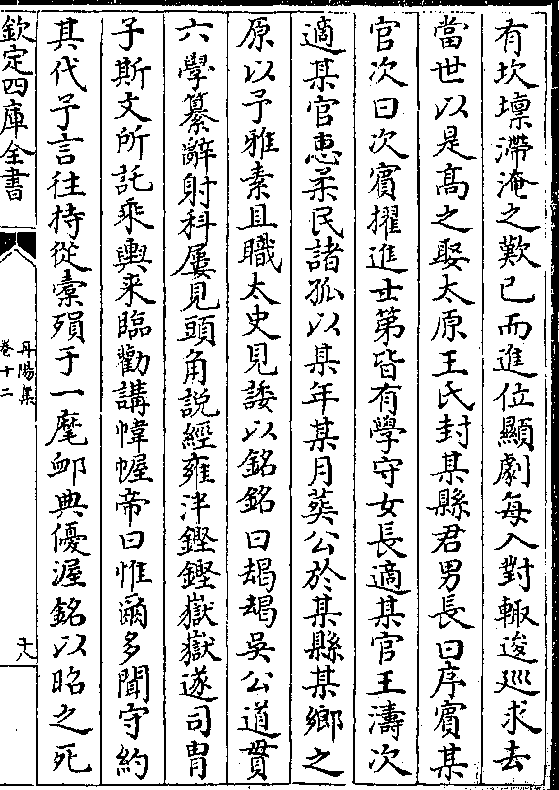 有坎壈滯淹之歎已而進位顯劇每入對輙逡廵求去
當世以是髙之娶太原王氏封某縣君男長曰序賔某
官次曰次賔擢進士第皆有學守女長適某官王濤次
適某官惠柔民諸孤以某年某月葬公於某縣某鄉之
原以予雅素且職太史見諉以銘銘曰朅朅吳公道貫
六學纂辭射科屢見頭角說經雍泮鏗鏗嶽嶽遂司胄
子斯文所託乘輿来臨勸講幃幄帝曰惟爾多聞守約
其代予言往持從槖殞于一麾卹典優渥銘以昭之死
欽定四庫全書
丹陽集
卷十二
十八